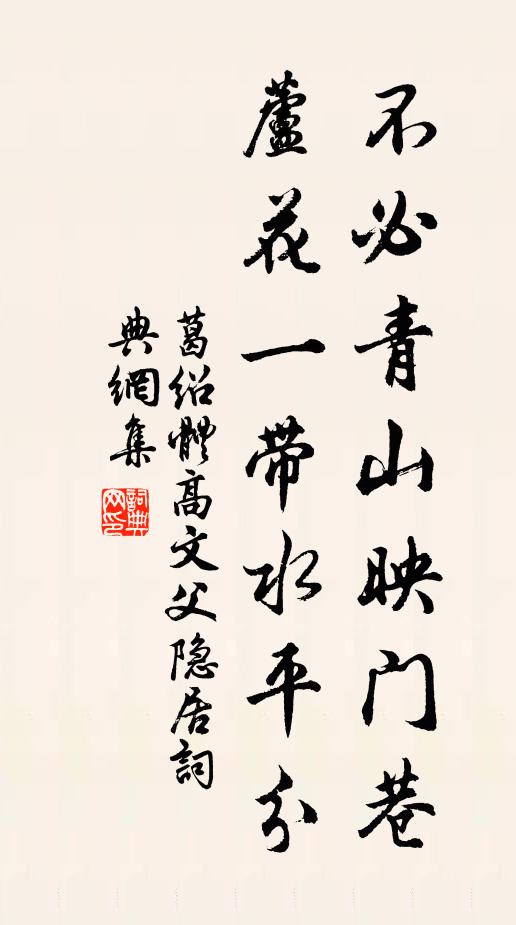 不必青山映門巷
蘆花一帶水平分
葛绍體高文父隐居詞
典網集
詞典
网印